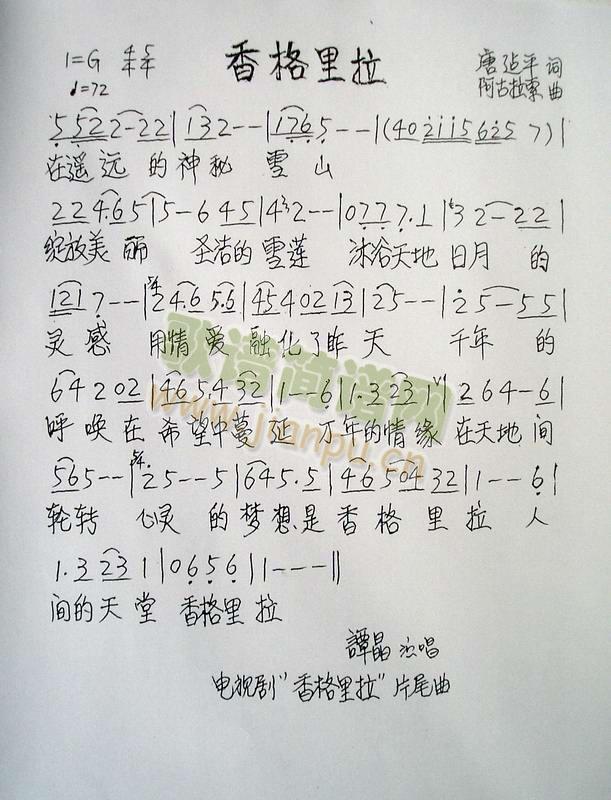 香格里拉
1=G 4/4 5/4
♩=72
唐跕平 词
阿古拉泰 曲
5 5 5 2 2 - 2 2 | 1 3 2 - - | 1 7 6 5 - - - | (4 0 2 1 1 5 6 2 5 7) |
在遥远 的神秘 雪山
2 2 4.6 5 | 5 - 6 4 5 | 4 3 2 - - | 0 7 7 7 . 1 | 3 2 - 2 2 |
绽放美丽 圣洁的雪莲 沐浴天地日月 的
1 2 1 7 - - | 2 4.6 5.6 | 4 5 4 0 2 1 3 | 2 5 - - - | 2 5 - 5 5 |
灵感 用情爱融化了昨天 千年 的
6 4 2 0 2 | 4 6 5.4 3 2 | 1 - - 6 | 1.3 2 3 1 | 2 6 4 - 6 |
呼唤在希望中蔓延 万年的情缘在天地间
5 6 5 - - | 2 5 - - 5 | 6 4 5.5 | 4 6 5 0 4 3 2 | 1 - - 6 |
轮转 心灵 的梦想是香格里拉 人
1.3 2 3 1 | 0 6 5 6 | 1 - - - ||
间的天堂 香格里拉
譚晶 演唱
电视剧"香格里拉"片尾曲
歌谱简谱网
www.jianpu.cn